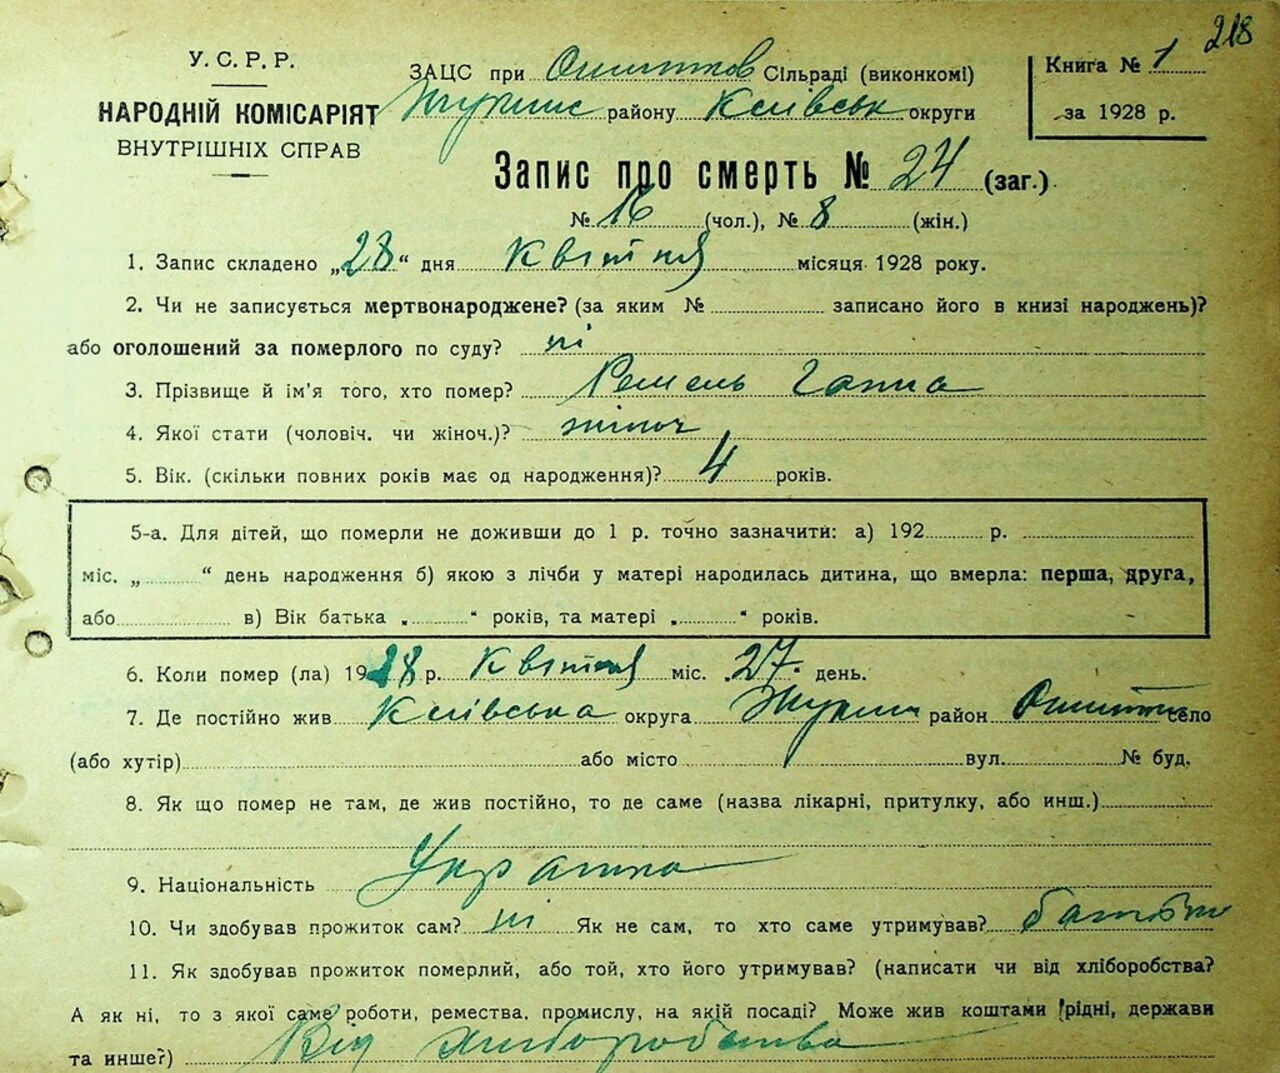 218
У. С. Р. Р.
НАРОДНІЙ КОМІСАРІЯТ
ВНУТРІШНІХ СПРАВ
ЗАЦС при Сільраді (виконкомі)
району Київськ округи
Книга № 1
за 1928 р.
Запис про смерть № 24 (заг.)
№ 16 (чол.), № 8 (жін.)
1. Запис складено „28“ дня квітня місяця 1928 року.
2. Чи не записується мертвонароджене? (за яким № записано його в книзі народжень)?
або оголошений за померлого по суду? ні
3. Прізвище й ім'я того, хто помер? Ганна
4. Якої стати (чоловіч. чи жіноч.)? жіноч
5. Вік. (скільки повних років має од народження)? 4 років.
5-а. Для дітей, що померли не доживши до 1 р. точно зазначити: а) 192 р.
міс. „ “ день народження б) якою з лічби у матері народилась дитина, що вмерла: перша, друга,
або в) Вік батька „ “ років, та матері „ “ років.
6. Коли помер (ла) 1928 р. квітня міс. „27“ день.
7. Де постійно жив Київська округа район село
(або хутір) або місто вул. № буд.
8. Як що помер не там, де жив постійно, то де саме (назва лікарні, притулку, або инш.)
9. Національність Українка
10. Чи здобував прожиток сам? ні Як не сам, то хто саме утримував? батьки
11. Як здобував прожиток померлий, або той, хто його утримував? (написати чи від хліборобства?
А як ні, то з якої саме роботи, ремества, промислу, на якій посаді? Може жив коштами рідні, держави
та инше?) Від хліборобства